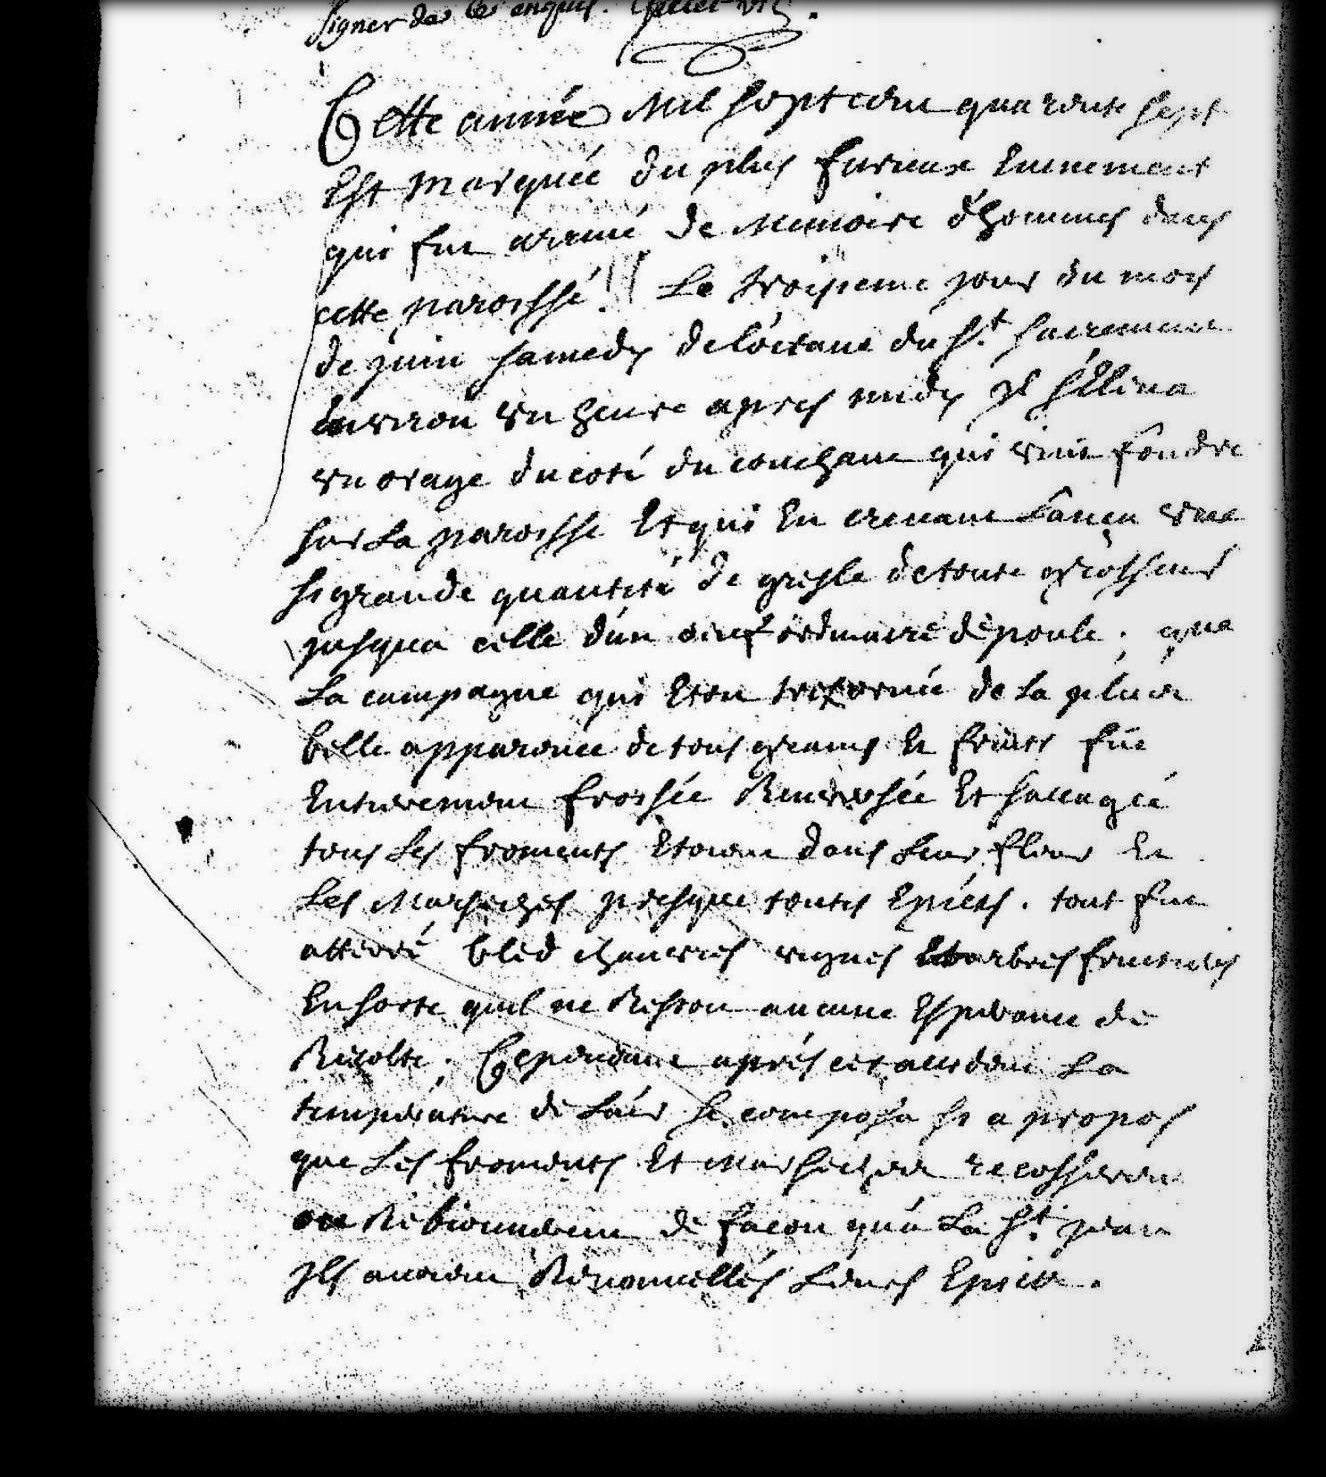 signer de ce enquis.
Cette année Mil sept cent quarente sept
Est marquée du plus furieux Evenement
qui fut arrivé de Memoire d'hommes dans
cette paroisse. Le troisieme jour du mois
de juin samedy de l'octave du St. sacrement
Environ un heure apres midy jl s'Eleva
un orage du coté du couchant qui vint fondre
sur La paroisse Et qui En crevant Lança une
si grande quantité de gresle de toute grosseur
jusqua celle d'un oeuf ordinaire de poule, que
La campagne qui Etoit tres ornée de la plus
belle apparence de tous grains Et fruits fut
Entierement froissée Renversée Et saccagée
tous Les froments Etoient dans Leur fleur Et
Les Marseches presque toutes Epiées. tout fut
atterré bled chanvres vignes Et arbres fruitiers
En sorte quil ne Restoit aucune Esperance de
Recolte; Cependant aprés cet accident La
temperature de L'air se composa si a propos
que Les froments Et Marseches recosserent
ou Rebionnerent de facon qu'a La St. jean
jls avoient Renouvellés Leurs Epics.